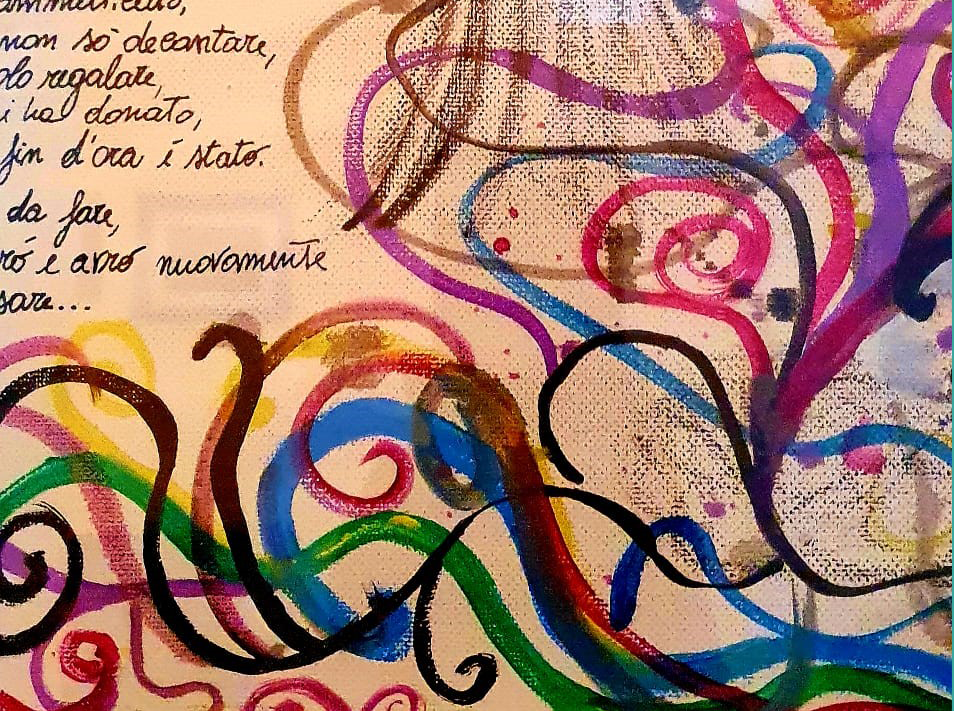 non sò decantare,
regalare,
ha donato,
fin d'ora é stato.
da fare,
e avró nuovamente